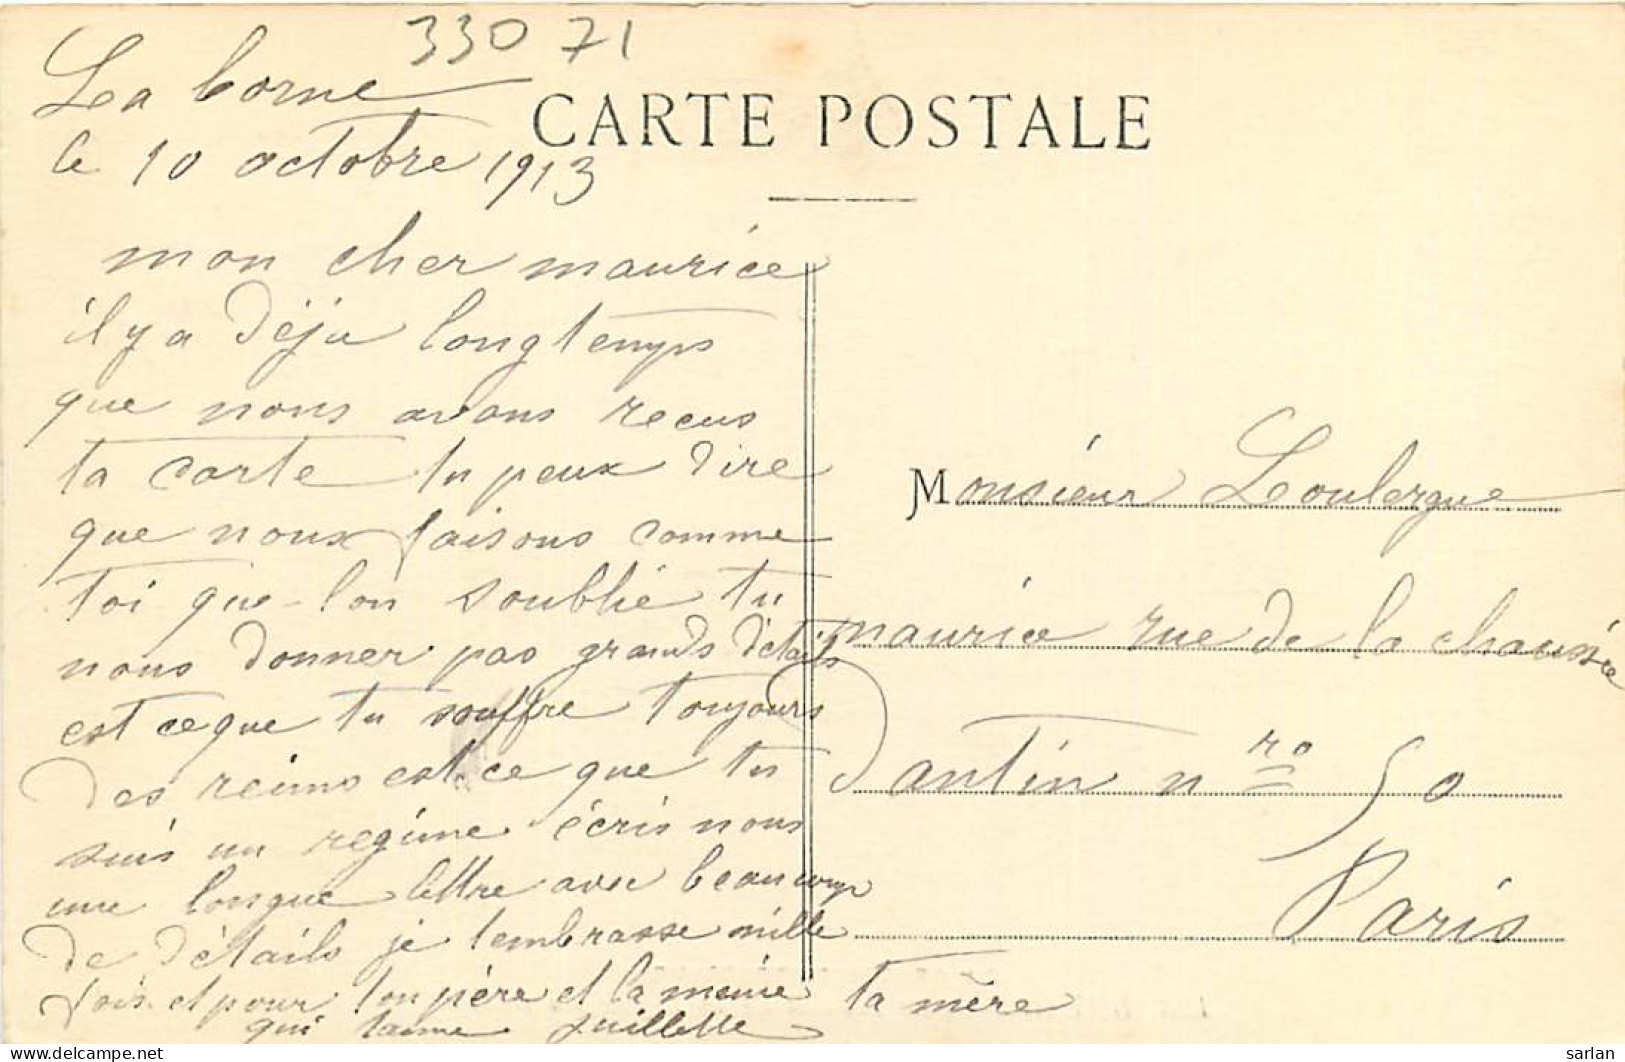 33071
La borne
le 10 octobre 1913
CARTE POSTALE
mon cher maurice
il y a déja longtemps
que nous avons recus
ta carte tu peux dire
que nous faisons comme
toi que lon soublie tu
nous donner pas grands détails
est ce que tu souffre toujours
des reims est ce que tu
suis un regime écris nous
une longue lettre avec beaucoup
de détails je tembrasse mille
fois et pour ton père et la mémé
qui taime
ta mère
Monsieur Loulergue
maurice rue de la chaussée
Dantin n ro 50
Paris
sarlan
delcampe.net